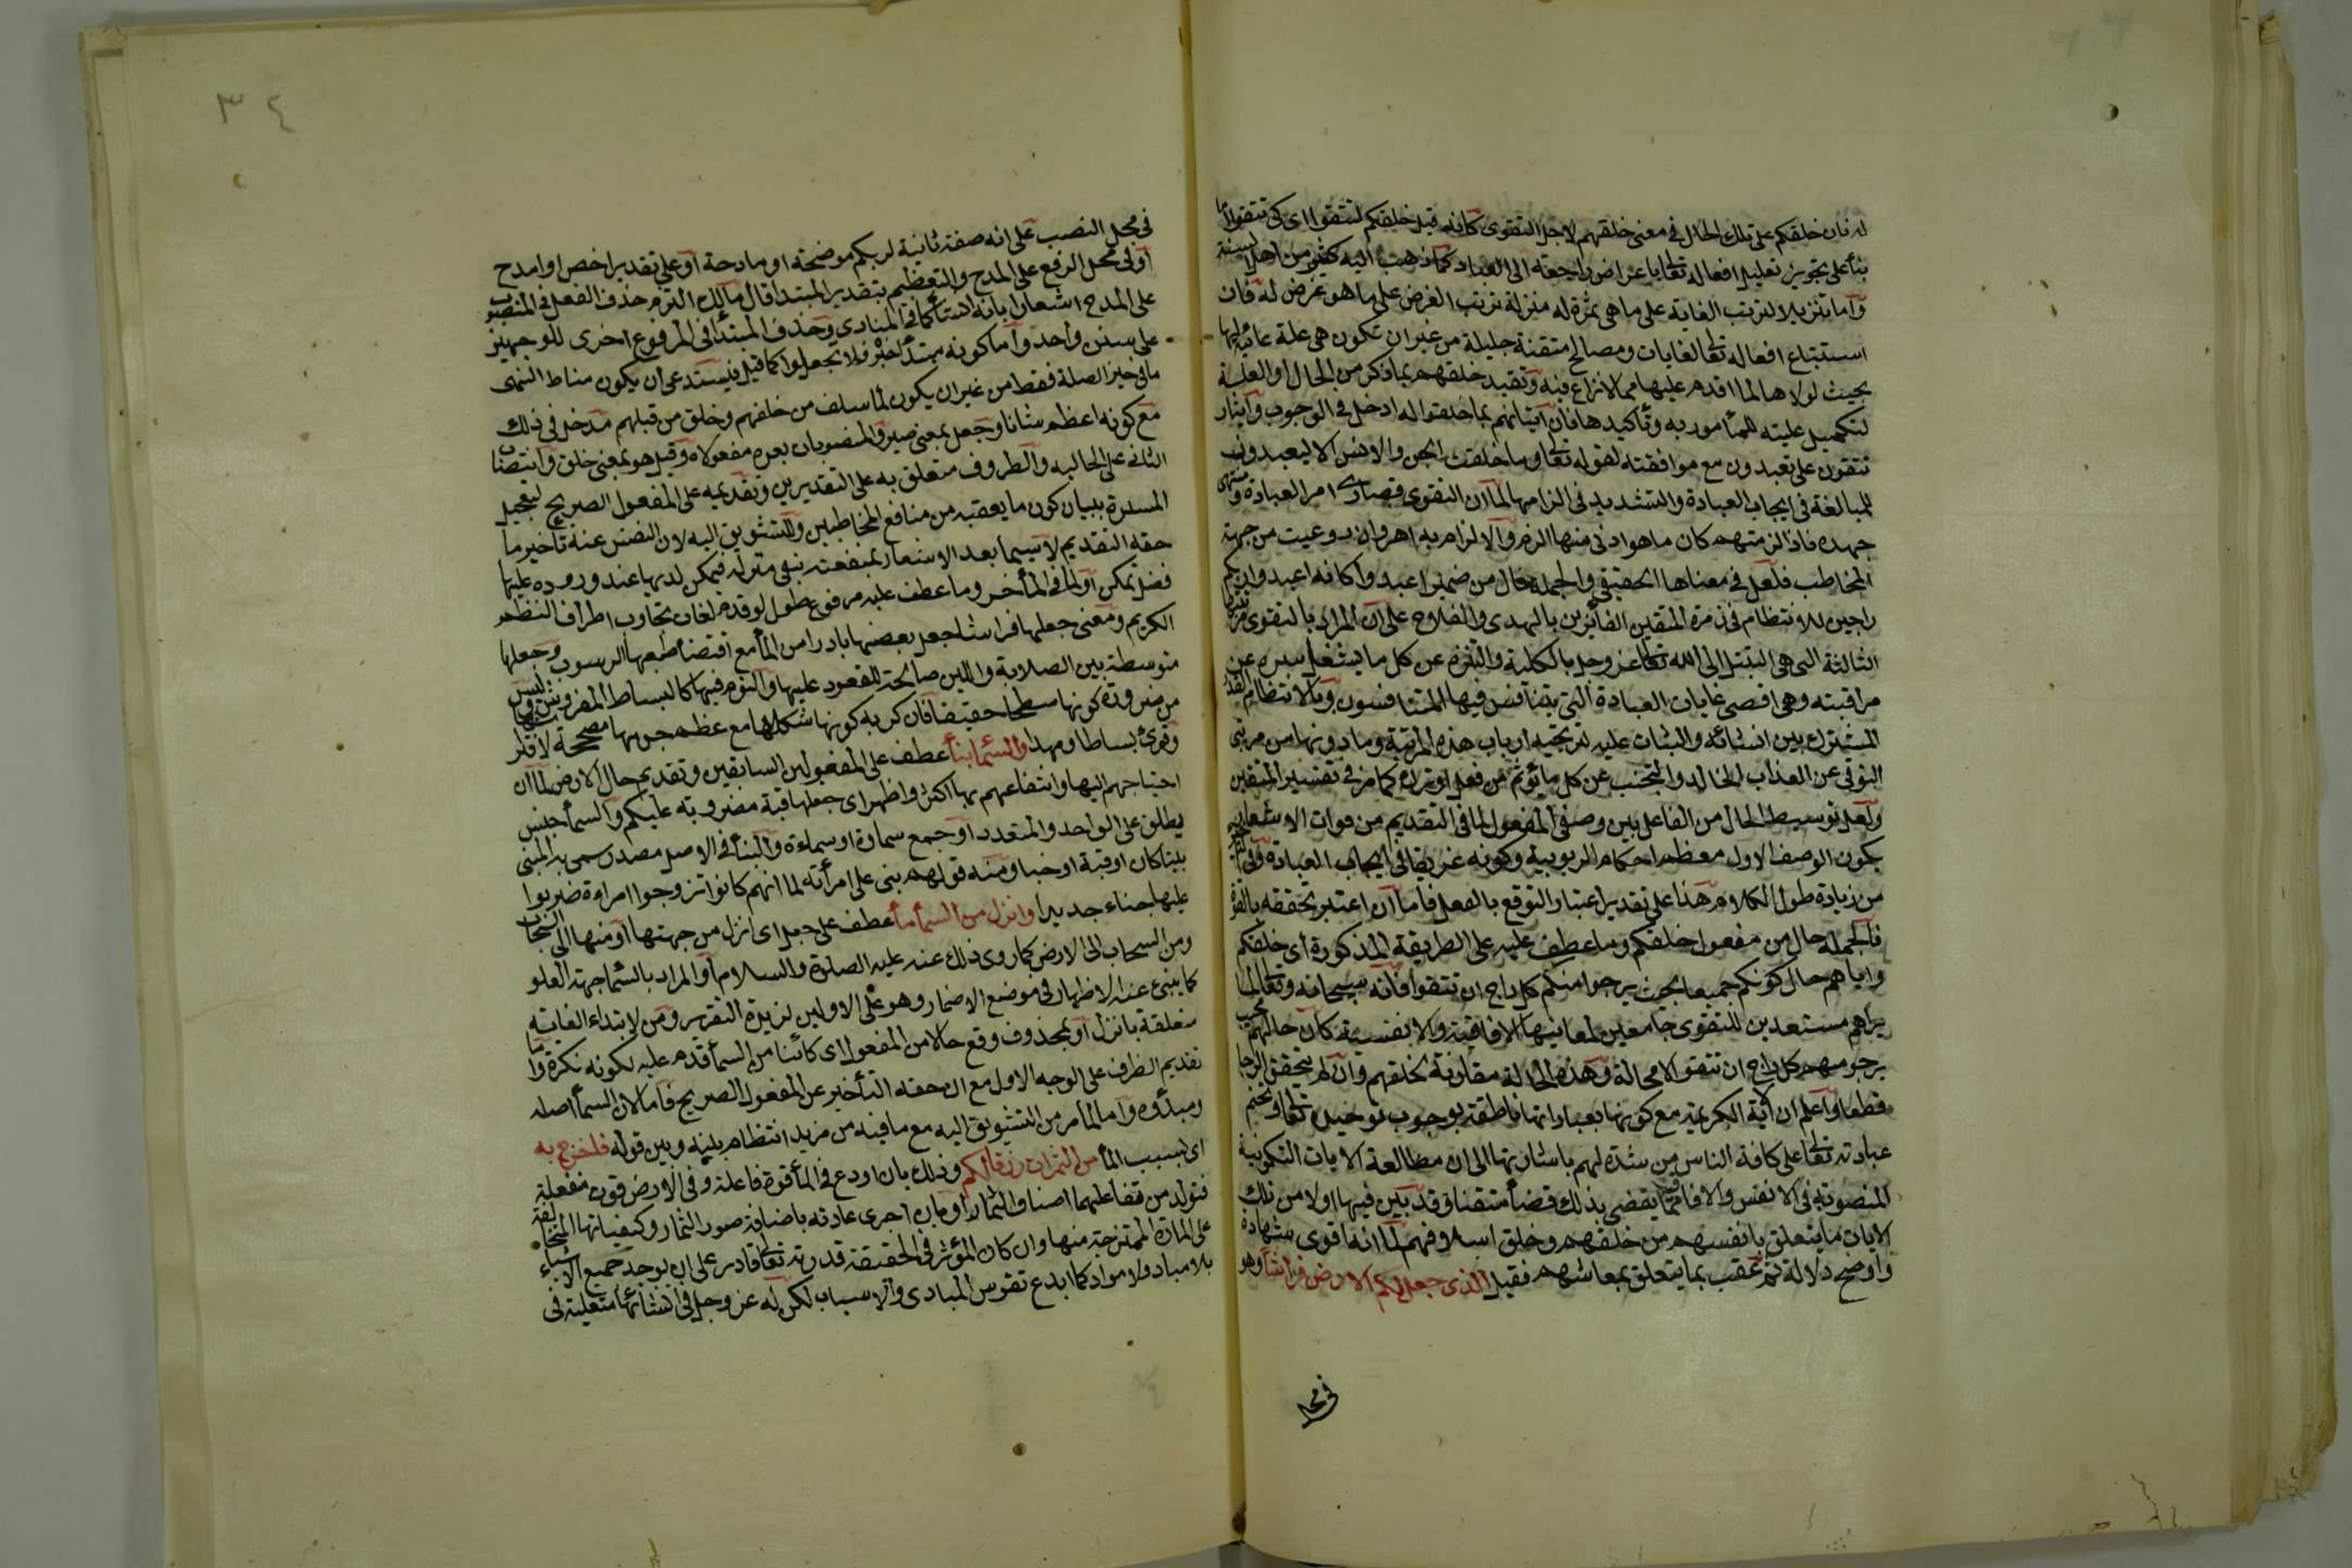 له فان خلقكم على تلك الحال في معنى خلقهم لاجل التقوى كانه قيل خلقكم لتتقوا اي كي تتقوا اما
بناء على تجويز تعليل افعاله تعالى باعراض راجعة الى العباد كما ذهب اليه كثير من اهل السنة
واما تنزيلا لترتب الغاية على ما هي ثمرة له منزلة ترتب الغرض على ما هو غرض له فان
استتباع افعاله تعالى لغايات ومصالح متقنة جليلة من غير ان تكون هي علة غائية لها
بحيث لولاها لما اقدم عليها مما لا نزاع فيه وتقييد خلقهم بما ذكر من الحال او العلة
لتكميل عليته للمأمور به وتأكيدها فان اتيانهم بما خلقوا له ادخل في الوجوب وايثار
تتقون على تعبدون مع موافقته لقوله تعالى وما خلقت الجن والانس الا ليعبدون
للمبالغة في ايجاب العبادة والتشديد في الزامها لما ان التقوى قصارى امر العبادة ومنتهى
جهده فاذا لزمتهم كان ما هو ادنى منها الزم والالزام به اهون وان روعيت من جهة
المخاطب فلعل في معناها الحقيقي والجملة حال من ضمير اعبدوا كانه اعبدوا ربكم
راجين للانتظام في زمرة المتقين الفائزين بالهدى والفلاح على ان المراد بالتقوى مرتبتها
الثالثة التي هي التبتل الى الله تعالى عز وجل بالكلية والتنزه عن كل ما يشغل سره عن
مراقبته وهي اقصى غايات العبادة التي يتنافس فيها المتنافسون وبالانتظام القدر
المشترك بين انشائه والثبات عليه ليرتجيه ارباب هذه المرتبة وما دونها من مرتبتي
التوقي عن العذاب الخالد والتجنب عن كل ما يؤثم من فعل او ترك كما مر في تفسير المتقين
ولعل توسيط الحال من الفاعل بين وصفي المفعول لما في التقديم من فوات الاشعار
بكون الوصف الاول معظم احكام الربوبية وكونه عريقا في ايجاب العبادة وفي التاخير
من زيادة طول الكلام هذا على تقدير اعتبار التوقع بالفعل فاما ان اعتبر تحققه بالقوة
فالجملة حال من مفعول خلقكم وما عطف عليه على الطريقة المذكورة اي خلقكم
واياهم حال كونكم جميعا بحيث يرجوا منكم كل راج ان تتقوا فانه سبحانه وتعالى لما
براهم مستعدين للتقوى جامعين لمعانيها الافاقية والانفسية كان حالهم بحيث
يرجو منهم كل راج ان تتقوا لا محالة وهذه الحالة مقارنة لخلقهم وان لم يتحقق الرجا
قطعا واعلم ان الاية الكريمة مع كونها بعبارتها ناطقة بوجوب توحيده تعالى وتحتم
عبادته تعالى على كافة الناس مرشدة لهم باشارتها الى ان مطالعة الايات التكوينية
المنصوبة في الانفس والافاق مما يقضي بذلك قضاء متقنا وقد بين فيها اولا من تلك
الايات ما يتعلق بانفسهم من خلقهم وخلق اسلافهم لما انه اقوى شهادة
واوضح دلالة ثم عقب بما يتعلق بمعاشهم فقيل الذي جعل لكم الارض فراشا وهو
في محل
٣٤
في محل النصب على انه صفة ثانية لربكم موضحة او مادحة او على تقدير اخص او امدح
او في محل الرفع على المدح والتعظيم بتقدير المبتدا قال مالك التزم حذف الفعل في المنصوب
على المدح اشعارا بانه انشاء كما في المنادى وحذف المبتدا في المرفوع اجرى للوجهين
على سنن واحد واما كونه مبتدأ خبره فلا تجعلوا كما قيل فيستدعي ان يكون مناط النهي
ما في حيز الصلة فقط من غير ان يكون لما سلف من خلقهم وخلق من قبلهم مدخل في ذلك
مع كونه اعظم شانا وجعل بمعنى صير والمنصوبان بعده مفعولاه وقيل هو بمعنى خلق وانتصاب
الثاني على الحالية والظرف متعلق به على التقديرين وتقديمه على المفعول الصريح لتعجيل
المسرة ببيان كون ما يعقبه من منافع المخاطبين وللتشويق اليه لان النفس عند تأخير ما
حقه التقديم لا سيما بعد الاشعار بمنفعته تبقى مترقبة له فيتمكن لديها عند وروده عليها
فضل تمكن او لما في المأخر وما عطف عليه من نوع طول لو قدم لفات تجاوب اطراف النظم
الكريم ومعنى جعلها فراشا جعل بعضها بارزا من الماء مع اقتضاء طبعها الرسوب وجعلها
متوسطة بين الصلابة واللين صالحة للقعود عليها والنوم فيها كالبساط المفروش وليس
من ضرورة كونها سطحا حقيقيا فان كرية كونها شكلها مع عظم جرمها مصححة لافتراشها
وقرئ بساطا ومهدا والسماء بناء عطف على المفعولين السابقين وتقديم حال الارض لما ان
احتياجهم اليها وانتفاعهم بها اكثر واظهر اي جعلها قبة مضروبة عليكم والسماء جنس
يطلق على الواحد والمتعدد او جمع سماوة او سماءة والبناء في الاصل مصدر سمي به المبنى
بيتا كان او قبة او خباء ومنه قولهم بنى على امرأته لما انهم كانوا اذا تزوجوا امراة ضربوا
عليها خباء جديدا وانزل من السماء ماء عطف على جعل اي انزل من جهتها او منها الى السحاب
ومن السحاب الى الارض كما روي ذلك عنه عليه الصلاة والسلام او المراد بالسماء جهة العلو
كما ينبئ عنه الاظهار في موضع الاضمار وهو على الاولين لزيادة التقرير ومن لابتداء الغاية
متعلقة بانزل او بمحذوف وقع حالا من المفعول اي كائنا من السماء قدم عليه لكونه نكرة واما
تقديم الظرف على الوجه الاول مع ان حقه التأخير عن المفعول الصريح فاما لان السماء اصله
ومبدؤه واما لما مر من التشويق اليه مع ما فيه من مزيد انتظام بينه وبين قوله فاخرج به
اي بسبب الماء من الثمرات رزقا لكم وذلك بان اودع في الماء قوة فاعلة وفي الارض قوة منفعلة
فتولد من تفاعلهما اصناف الثمار او بان اجرى عادته بافاضة صور الثمار وكيفياتها المتخالفة
على المادة الممتزجة منهما وان كان المؤثر في الحقيقة قدرته تعالى قادر على ان يوجد جميع الاشياء
بلا مباد ولا مواد كما ابدع نفوس المبادي والاسباب لكن له عز وجل في انشائها متعلية في